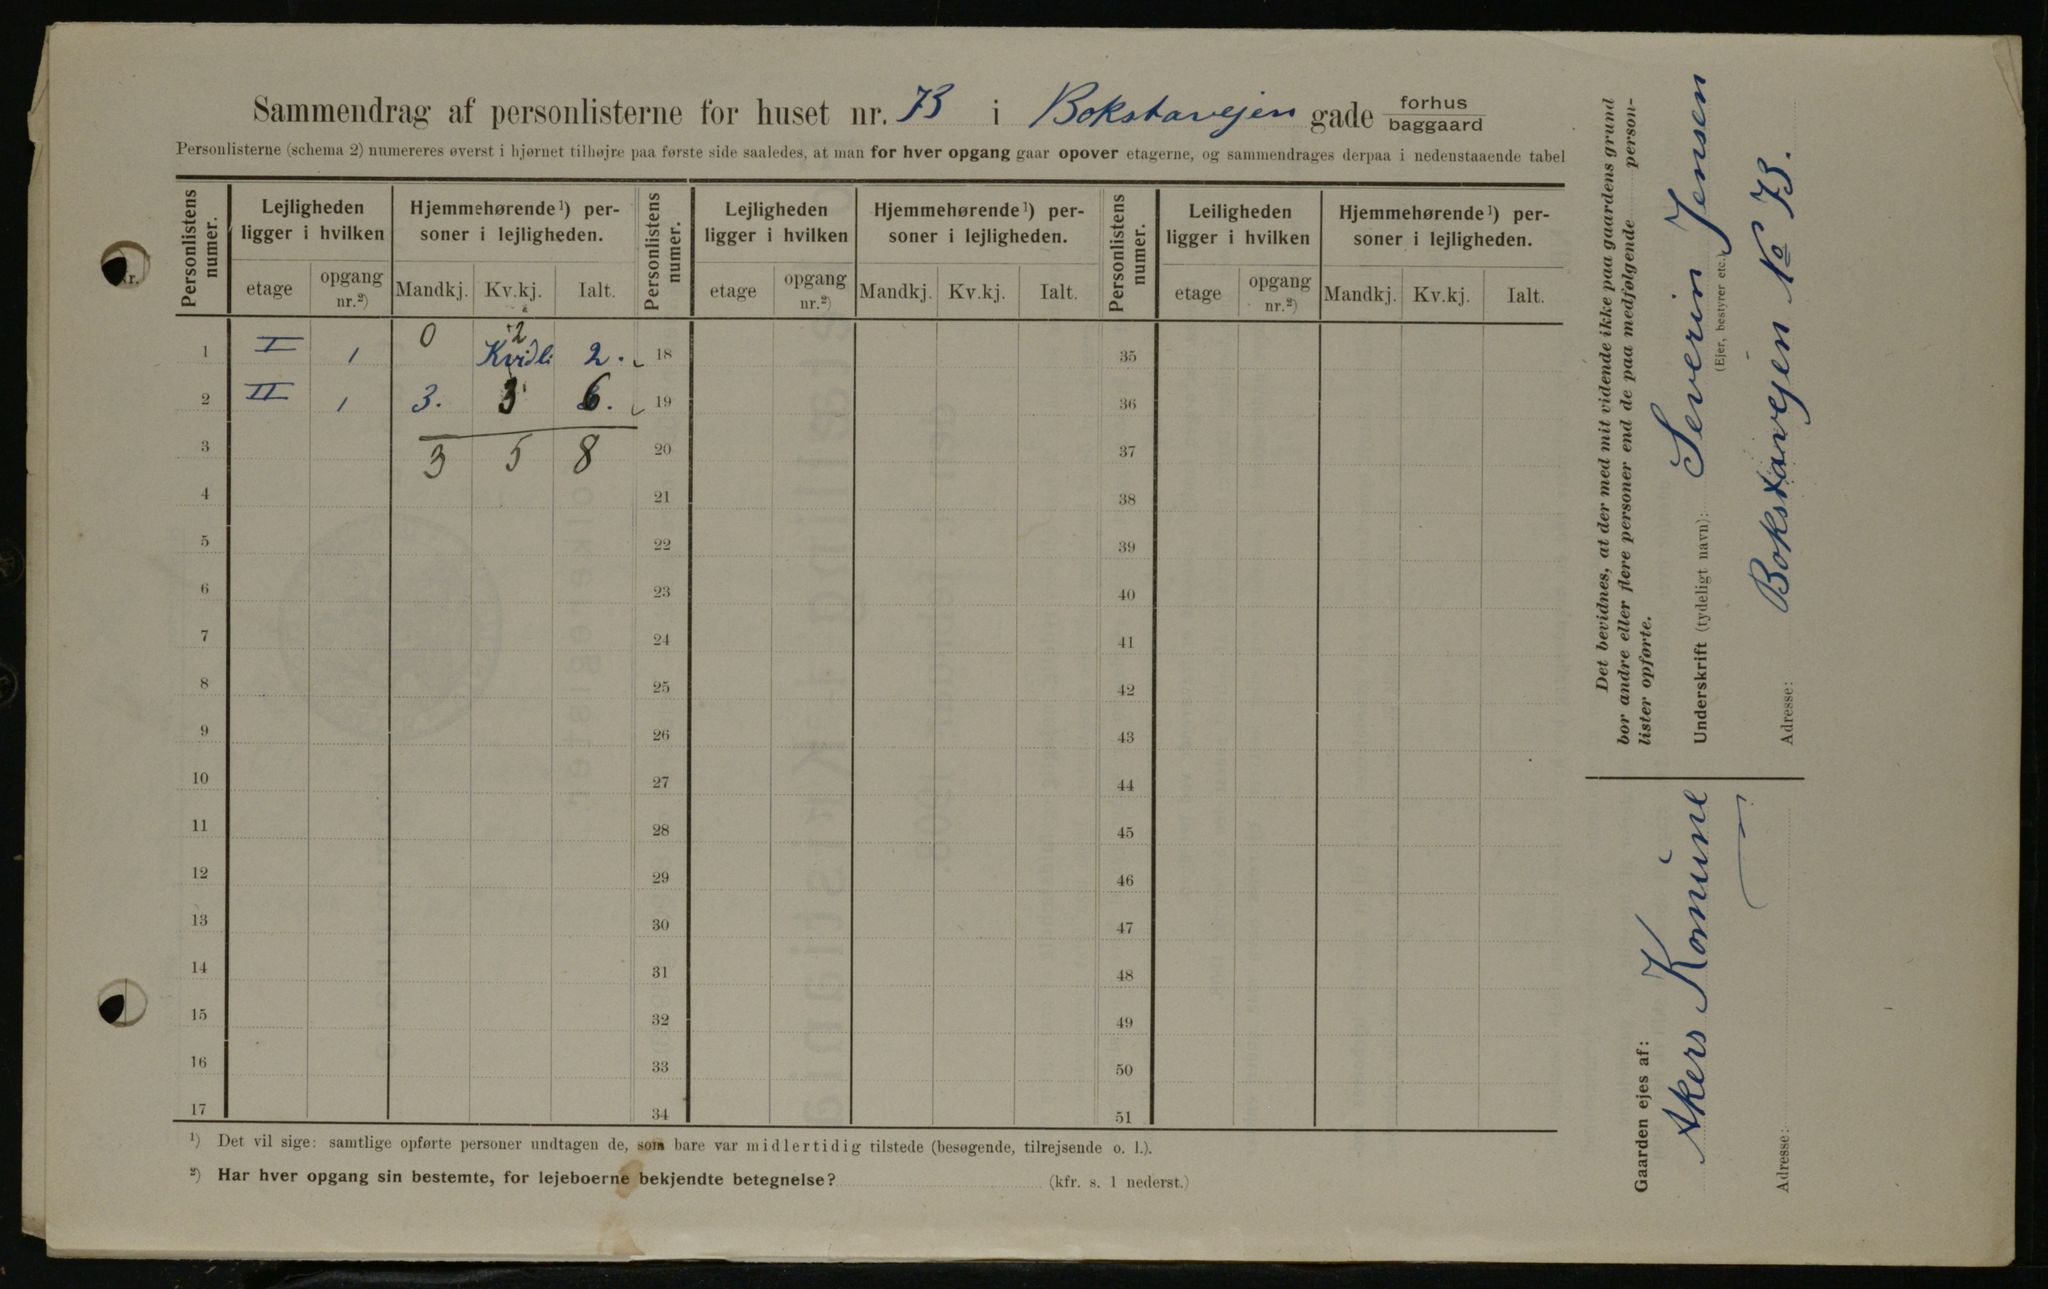 Sammendrag af personlisterne for huset nr. 73 i Bokstavejen gade forhus baggaard
Personlisterne (schema 2) numereres øverst i hjørnet tilhøjre paa første side saaledes, at man for hver opgang gaar opover etagerne, og sammendrages derpaa i nedenstaaende tabel
Personlistens numer. Lejligheden ligger i hvilken Hjemmehørende¹) personer i lejligheden. Personlistens numer. Lejligheden ligger i hvilken Hjemmehørende¹) personer i lejligheden. Personlistens numer. Leiligheden ligger i hvilken Hjemmehørende¹) personer i lejligheden.
etage opgang nr.²) Mandkj. Kv.kj. Ialt. etage opgang nr.²) Mandkj. Kv.kj. Ialt. etage opgang nr.²) Mandkj. Kv.kj. Ialt.
1 I 1 0 2 2. 18 35
2 II 1 3. 3 6. 19 36
3 3 5 8 20 37
4 21 38
5 22 39
6 23 40
7 24 41
8 25 42
9 26 43
10 27 44
11 28 45
12 29 46
13 30 47
14 31 48
15 32 49
16 33 50
17 34 51
¹) Det vil sige: samtlige opførte personer undtagen de, som bare var midlertidig tilstede (besøgende, tilrejsende o. l.).
²) Har hver opgang sin bestemte, for lejeboerne bekjendte betegnelse? (kfr. s. 1 nederst.)
Det bevidnes, at der med mit vidende ikke paa gaardens grund
bor andre eller flere personer end de paa medfølgende person-
lister opførte.
Underskrift (tydeligt navn): Severin Jensen
(Ejer, bestyrer etc.)
Adresse: Bokstavejen No 73.
Gaarden ejes af:
Akers Komune
Adresse: